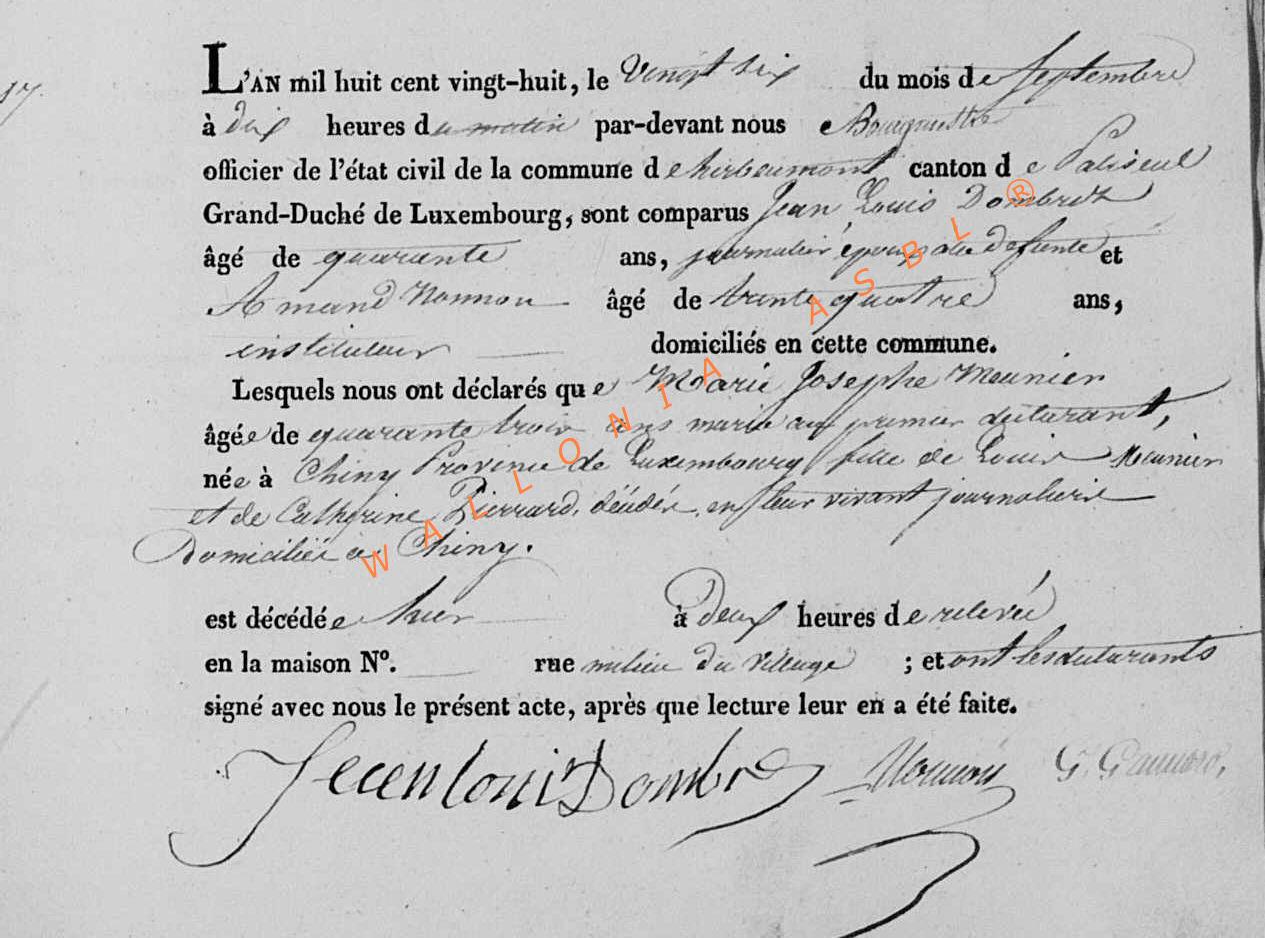 17.
L'AN mil huit cent vingt-huit, le Vingt six du mois de Septembre
à dix heures du matin par-devant nous Bourgmestre
officier de l'état civil de la commune d'herbeumont canton de Paliseul
Grand-Duché de Luxembourg, sont comparus Jean Louis Dombret
âgé de quarante ans, journalier époux de la défunte et
Amand Nonnon âgé de trente quatre ans,
instituteur domiciliés en cette commune.
Lesquels nous ont déclarés que Marie Josephe Meunier
âgée de quarante trois ans mariée au premier déclarant,
née à Chiny Province de Luxembourg fille de Louis Meunier
et de Catherine Pierrard, décédés, en leur vivant journaliers
Domiciliés à Chiny.
est décédée hier à deux heures de relevée
en la maison Nº. rue milieu du village ; et ont les déclarants
signé avec nous le présent acte, après que lecture leur en a été faite.
Jean Loui Dombré Nonnon G.
WALLONIA ASBL ®